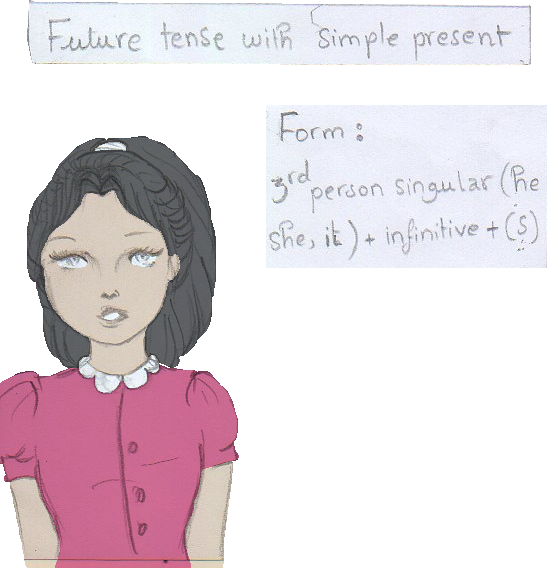 Future tense with simple present
Form :
3rd person singular (he
she, it) + infinitive + (s)